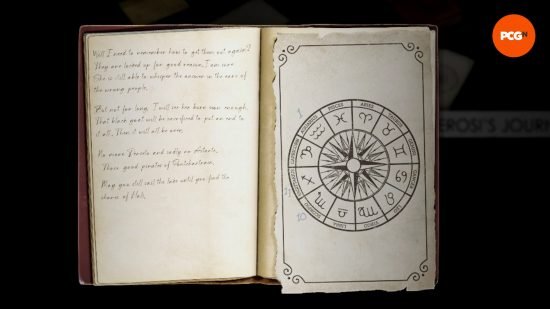 PCGN
Will I need to remember how to get them out again?
They are locked up for good reason, I am sure
She is still able to whisper the answer in the ears of
the wrong people.
But not for long. I will see her burn soon enough.
That black goat will be sacrificed to put an end to
it all. Then it will all be over.
No more and sadly no
Those good pirates of
May you still sail the lake until you find the
shores of
1
11
10
PISCES
ARIES
LEO
VIRGO
LIBRA
SCORPIO
AQUARIUS
EROSI'S JOUR